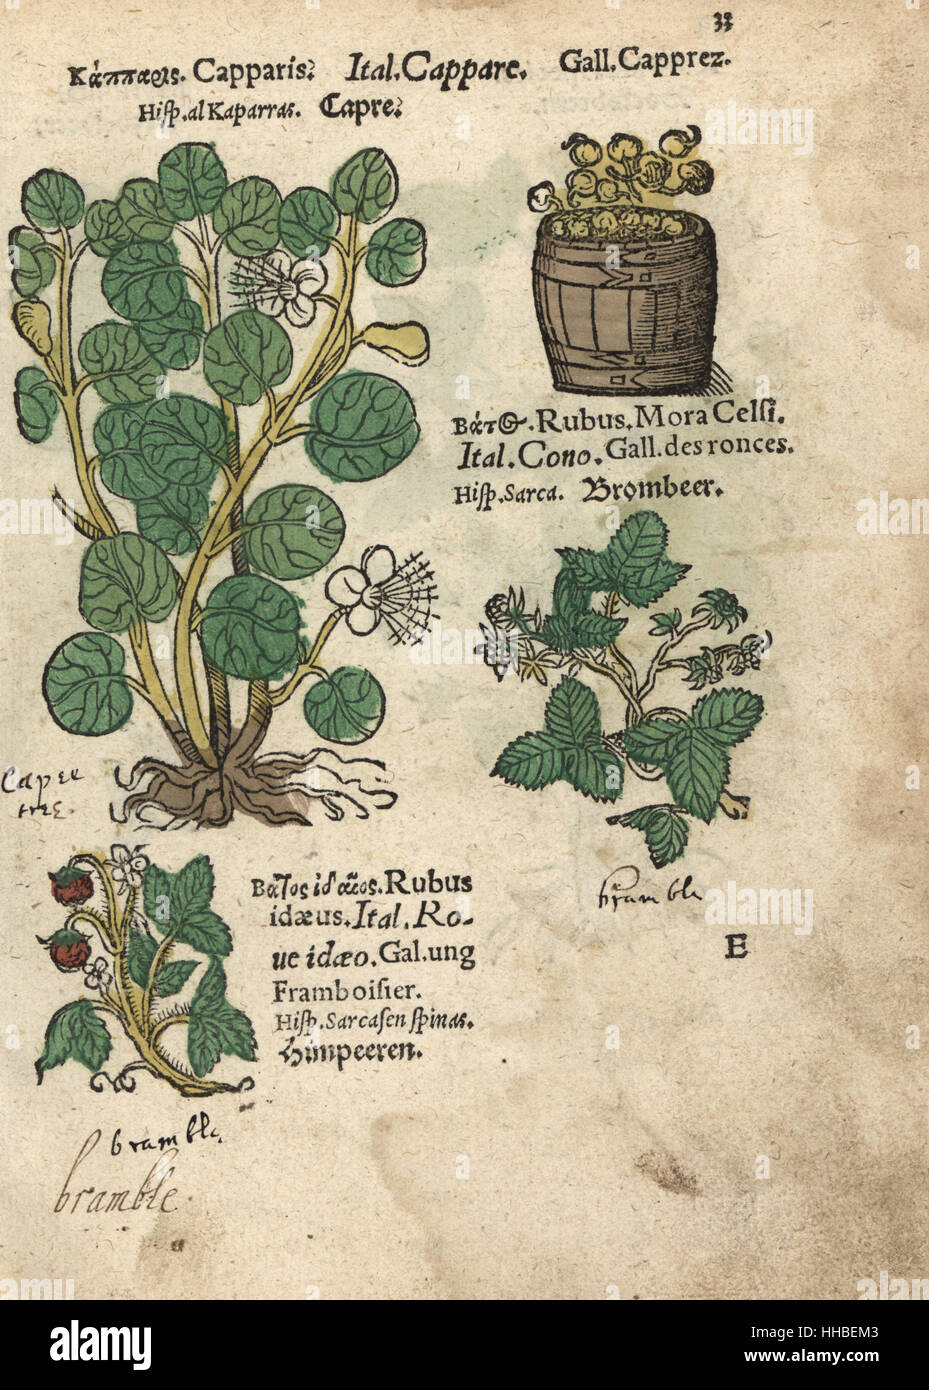 33
Κάππαρις. Capparis? Ital. Cappare. Gall. Capprez.
Hiſp. al Kaparras. Capre?
Βάτ⊙. Rubus. Mora Celſi.
Ital. Cono. Gall. des ronces.
Hiſp. Sarca. Brombeer.
Capre
tree.
brambla
Βάτος ἰδαῖος. Rubus
idæus. Ital. Ro-
ue idæo. Gal. ung
Framboiſier.
Hiſp. Sarcaſen ſpinas.
Himpeeren.
E
brambla
bramble
alamy
alamy
Image ID: HHBEM3
www.alamy.com